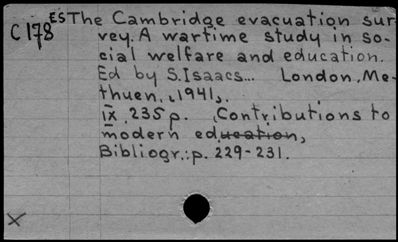 ES The Cambridge evacuation sur-
C178 vey. A wartime study in so-
cial welfare and education.
Ed by S. Isaacs... London, Me-
thuen, 1941.
ix, 235 p. (Contributions to
modern education)
Bibliogr.: p. 229-231.
x